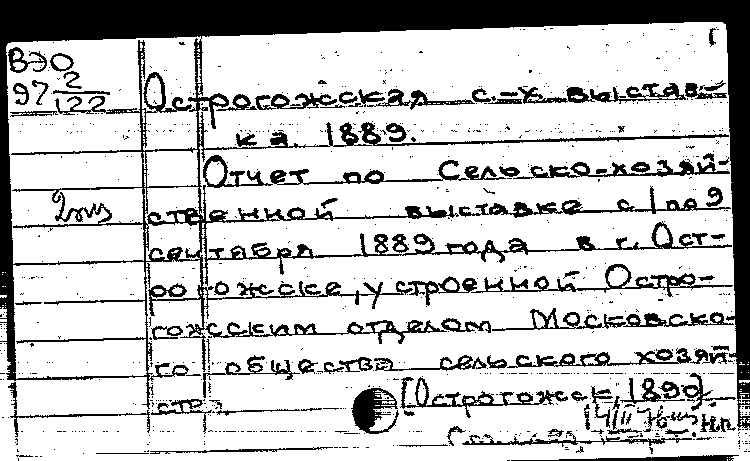 ВЭО
97 2/122
Острогожская с.-х. выстав-
ка. 1889.
Отчет по Сельско-хозяй-
2 экз
ственной выставке с 1 по 9
сентября 1889 года в г. Ост-
рогожске, устроенной Остро-
гожским отделом Московско-
го общества сельского хозяй-
ства.
[Острогожск, 1890].